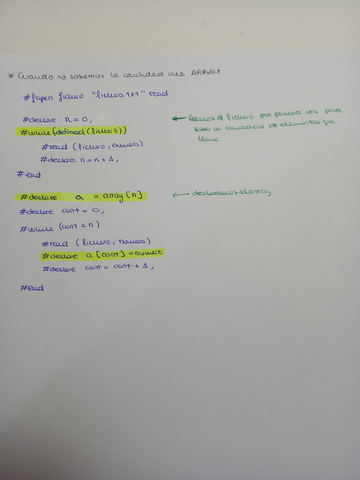 * Cuando no sabemos la cantidad del ARRAY
#fopen fichero "fichero.txt" read
#declare n = 0;
#while (defined (fichero))
#read (fichero, numero)
#declare n = n + 1;
#end
← leemos el fichero por primera vez para
saber la cantidad de elementos que
tiene
#declare a = array [n]
← declaramos el array
#declare cont = 0;
#while (cont < n)
#read (fichero, numero)
#declare a [cont] = numero
#declare cont = cont + 1;
#end